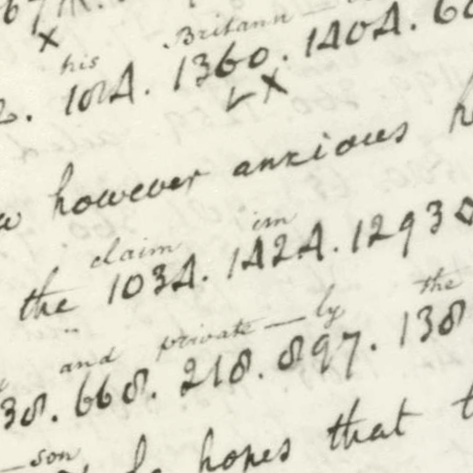 his Britann
1024. 1360. 1404.
however anxious
claim im
the 1034. 1424. 1293
and private — by the
38. 668. 218. 897. 138
son
hopes that